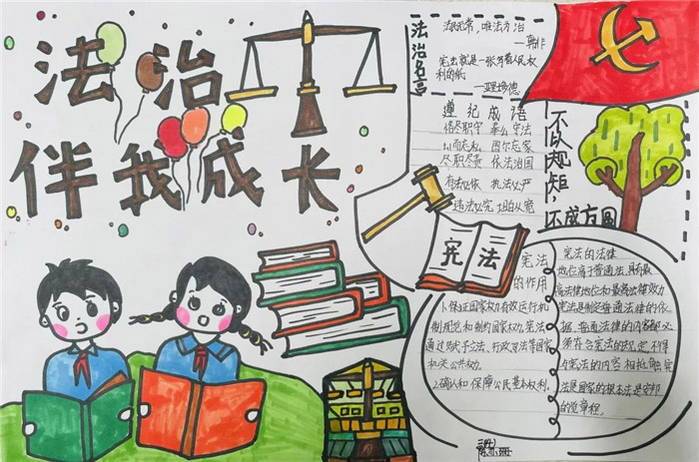 法治
伴我成长
法治名言
法无常，唯法为治
宪法就是一张写着人民权
利的纸
遵纪成语
恪尽职守 奉公守法
以而忘私 国尔忘家
尽职尽责 依法治国
有法必依 执法必严
违法必究 坦白从宽
不以规矩，
不成方圆
宪法
宪法
的作用
1.保证国家权力有效运行
规范和制约国家权力,宪法
通过 立法、行政司法等国家
机关公共权力。
2.确认和保障公民基本权利。
宪法的法律
地位高于普通法,具有最
高法律地位和最高法律效力
宪法是制定普通法律的依
据,普通法律的内容都必
须符合宪法的规定,不得
宪法的内容相抵触,宪
法是国家的根本法是安邦
的章程。